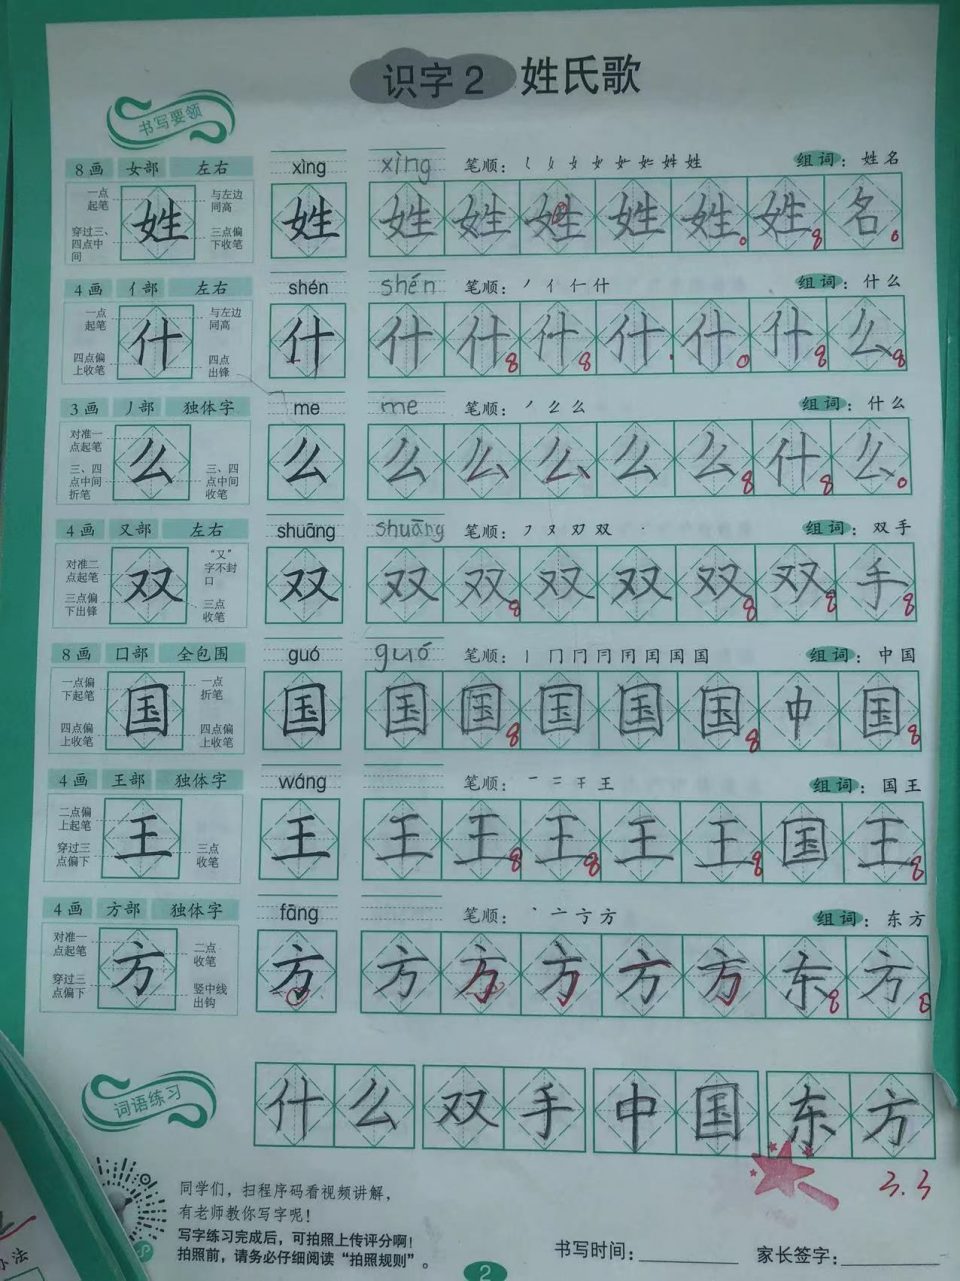 识字2 姓氏歌
书写要领
8画 女部 左右 xìng xìng 笔顺: 组词: 姓名
一点起笔 与左边同高
穿过三、四点中间 三点偏下收笔
姓 姓 姓 姓 姓 姓 姓 姓 名
4画 亻部 左右 shén shén 笔顺: 丿 亻 仁 什 组词: 什么
一点起笔 与左边同高
四点偏上收笔 四点出锋
什 什 什 什 什 什 什 什 么
3画 丿部 独体字 me me 笔顺: 组词: 什么
对准一点起笔
三、四点中间折笔 三、四点中间收笔
么 么 么 么 么 么 么 什 么
4画 又部 左右 shuāng shuāng 笔顺: 组词: 双手
对准二点起笔 “又”字不封口
三点偏下出锋 三点收笔
双 双 双 双 双 双 双 双 手
8画 口部 全包围 guó guó 笔顺: 组词: 中国
一点偏下起笔 一点折笔
四点偏上收笔 四点偏上收笔
国 国 国 国 国 国 国 中 国
4画 王部 独体字 wáng 笔顺: 一 二 干 王 组词: 国王
二点偏上起笔
穿过三点偏下 三点收笔
王 王 王 王 王 王 王 国 王
4画 方部 独体字 fāng 笔顺: 丶 亠 方 方 组词: 东方
对准一点起笔 二点收笔
穿过三点偏下 竖中线出钩
方 方 方 方 方 方 方 东 方
词语练习
什么 双手 中国 东方
3.3
同学们，扫程序码看视频讲解，
有老师教你写字呢！
写字练习完成后，可拍照上传评分啊！
拍照前，请务必仔细阅读“拍照规则”。
书写时间: 家长签字:
2
办法